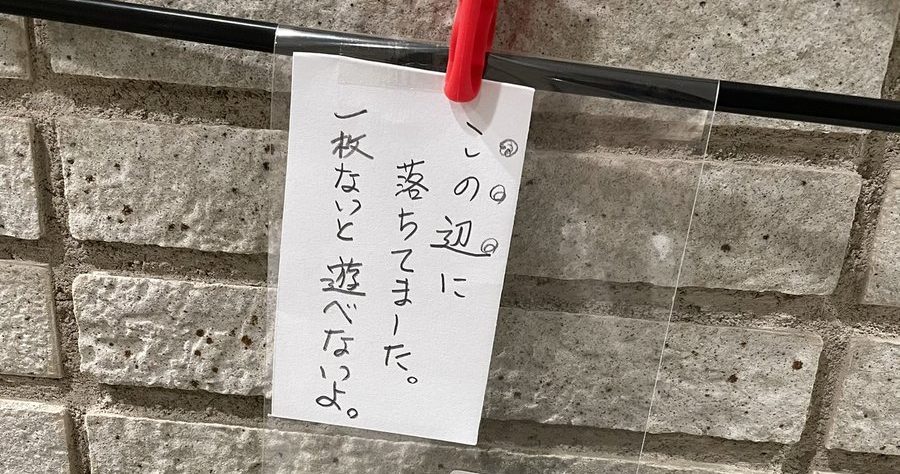 この辺に
落ちてました。
一枚ないと遊べないよ。